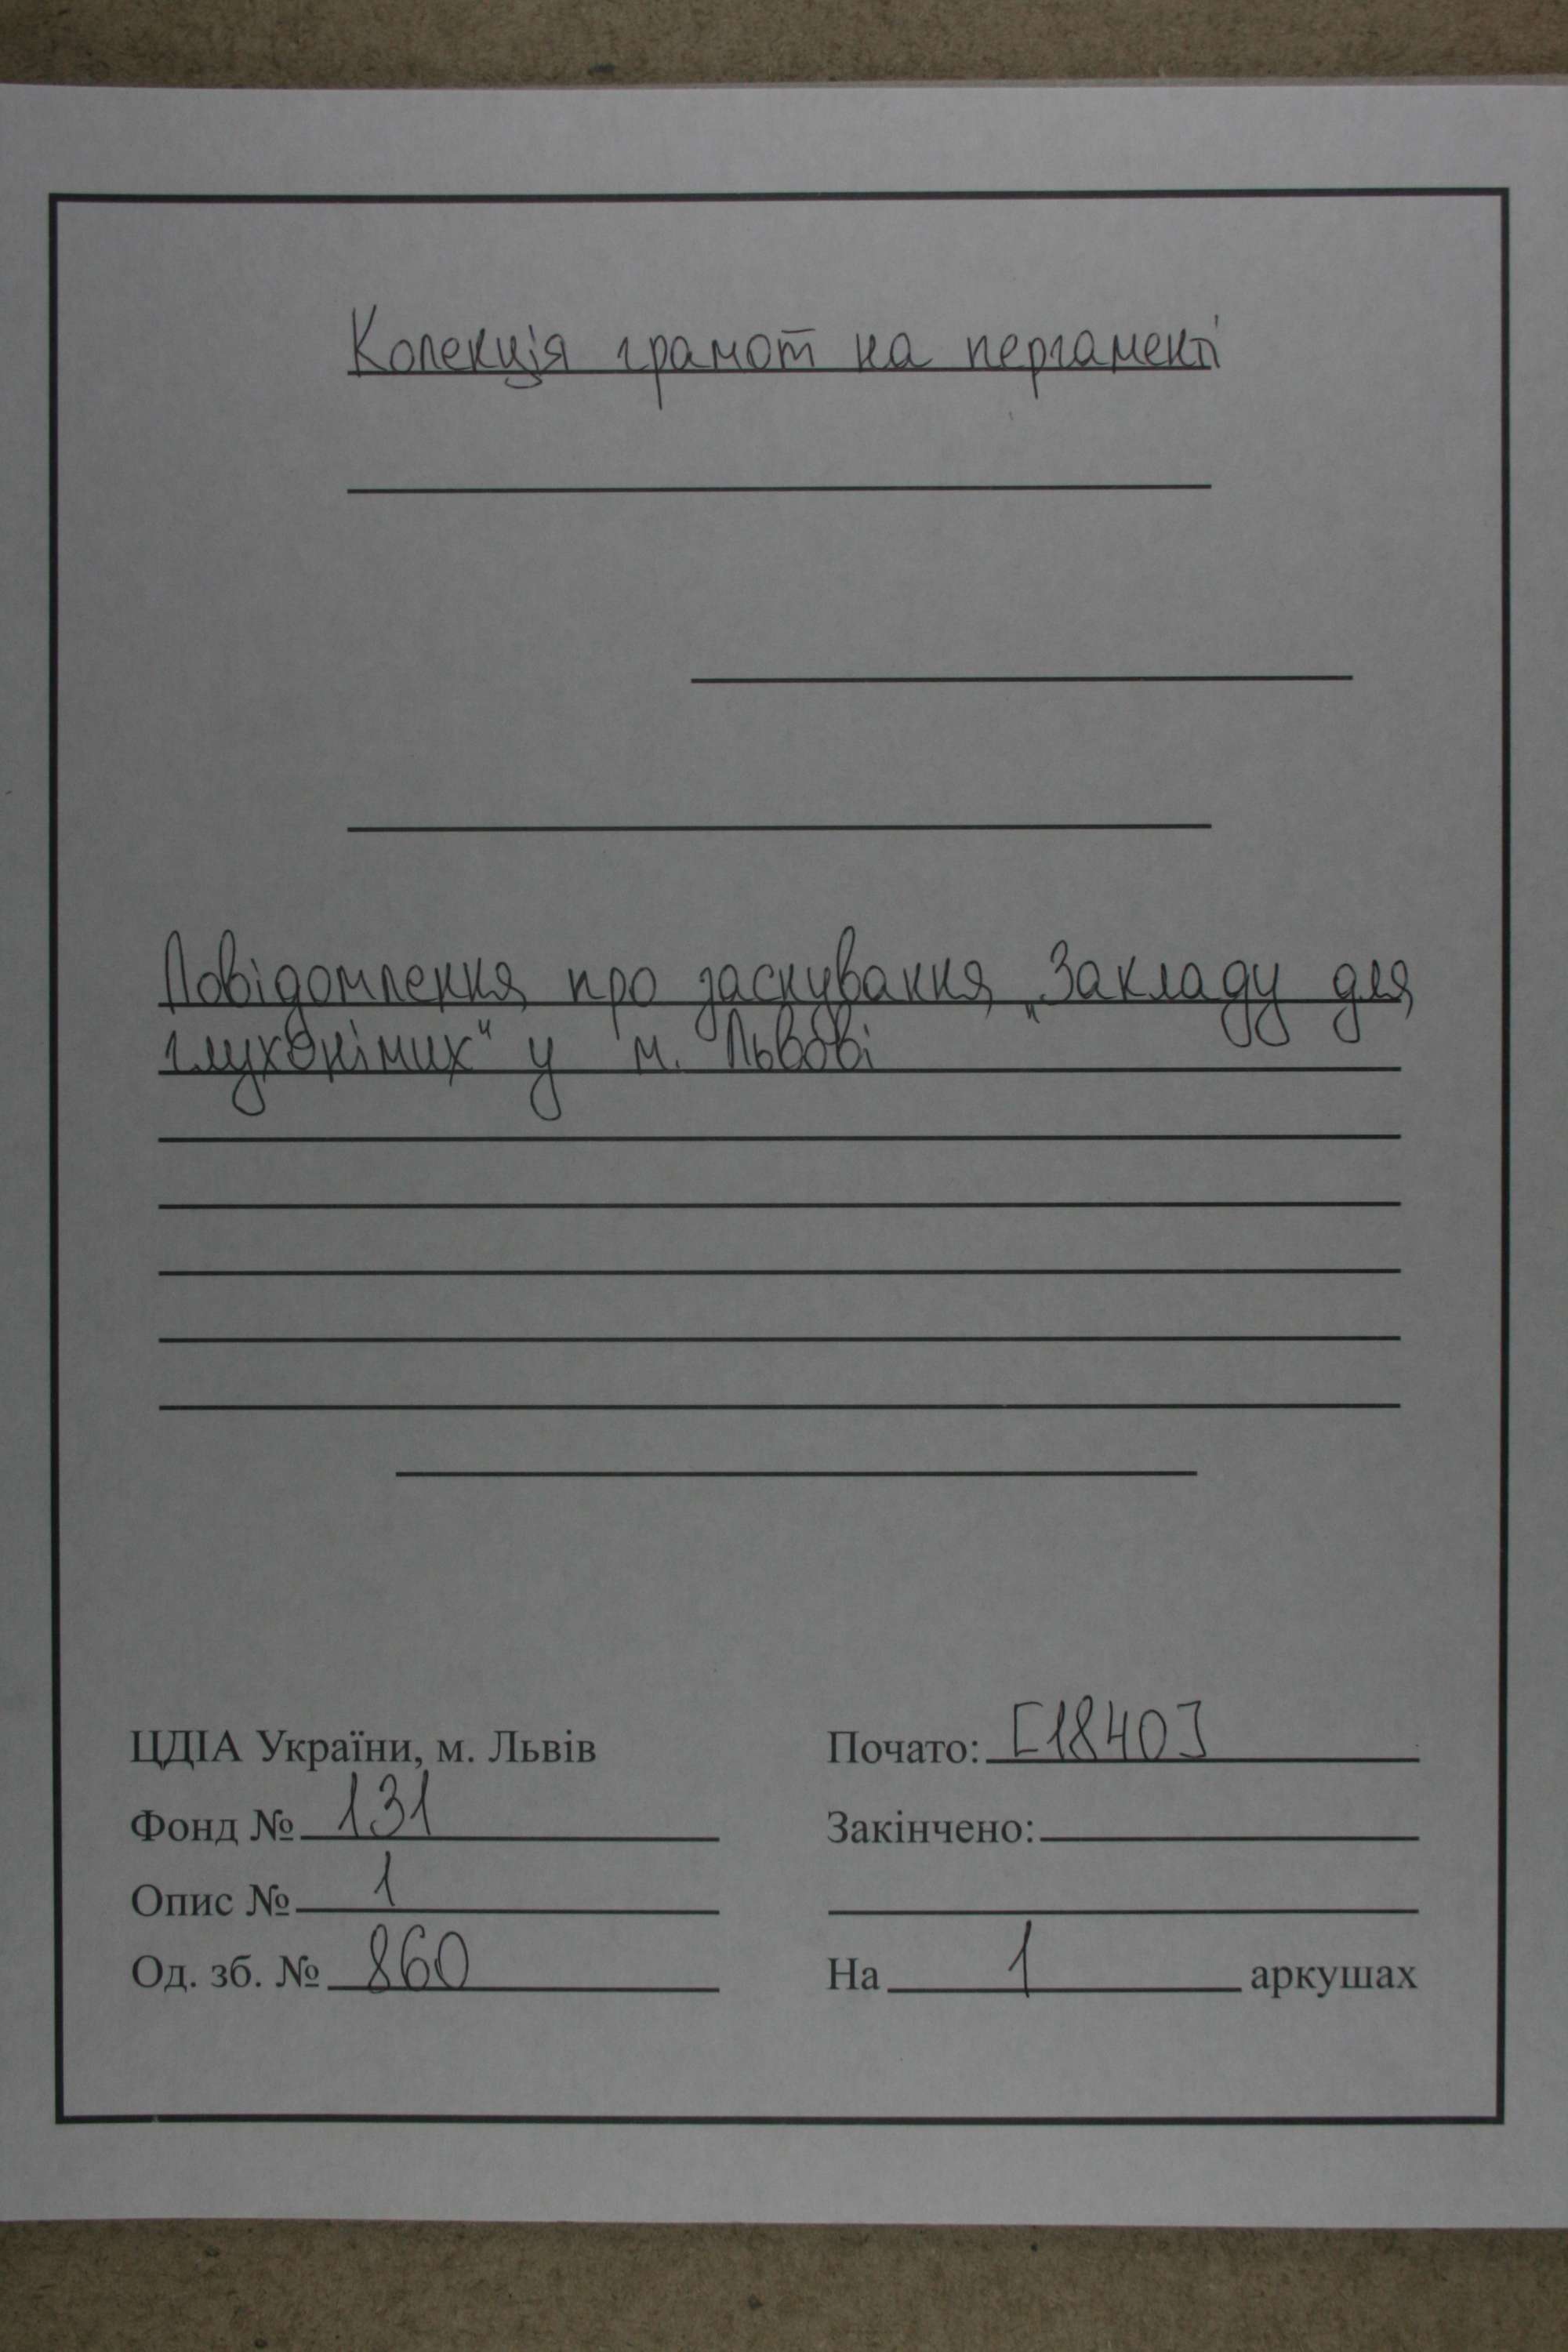 Колекція грамот на пергаменті
Повідомлення про заснування „Закладу для
глухонімих“ у м. Львові
ЦДІА України, м. Львів
Фонд № 131
Опис № 1
Од. зб. № 860
Почато: [1840]
Закінчено:
На 1 аркушах